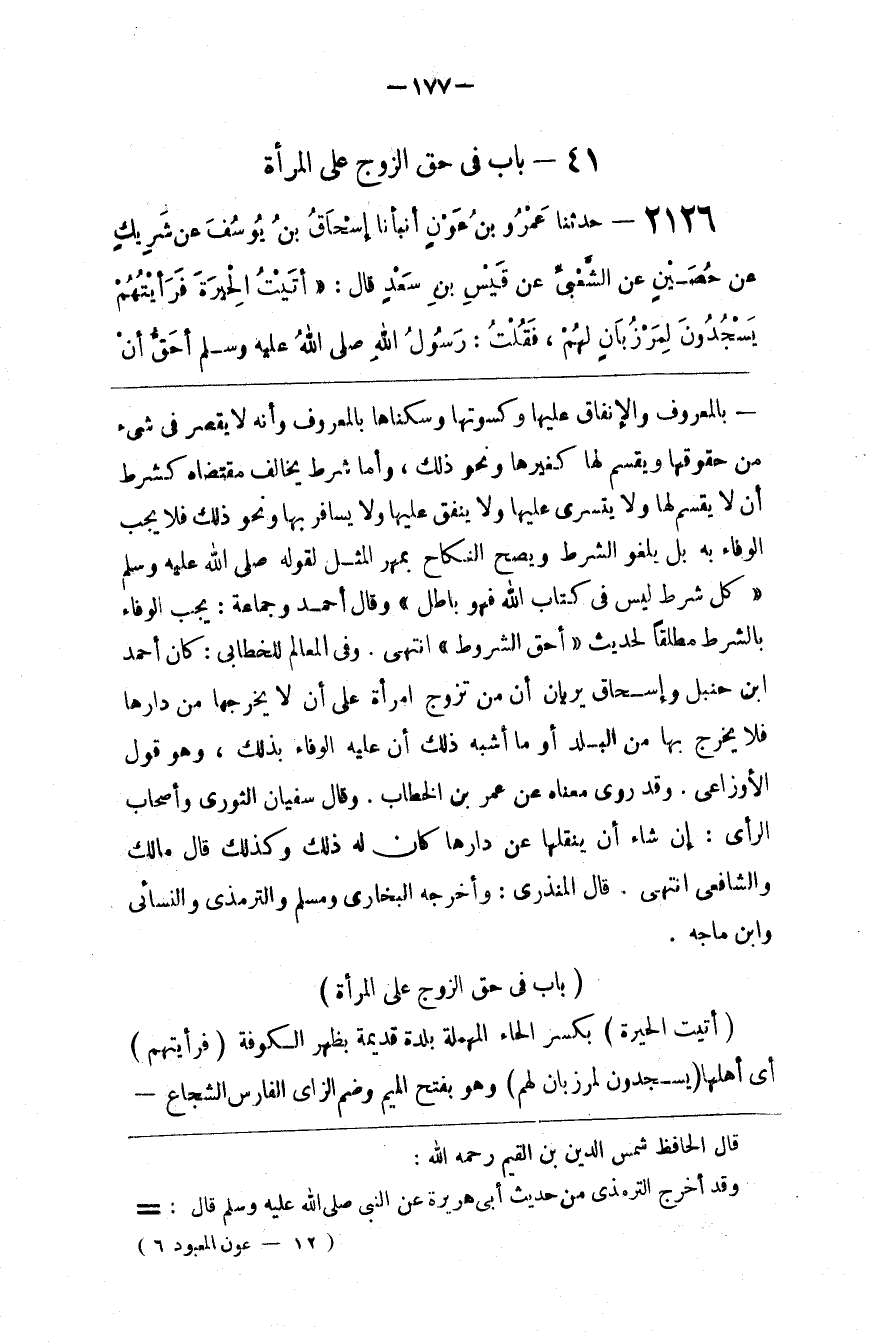 — ١٧٧ —
٤١ — باب فى حق الزوج على المرأة
٢١٢٦ — حدثنا عَمْرُو بنُ عَوْنٍ أنبأنا إسْحَاقُ بنُ يُوسُفَ عن شَرِيكٍ
عن حُصَـيْنٍ عن الشَّعْبىِّ عن قَيْسِ بنِ سَعْدٍ قال : « أتَيْتُ الْحِيرَةَ فَرَأيْتُهُمْ
يَسْجُدُونَ لِمَرْزُبَانٍ لهُمْ ، فَقُلْتُ : رَسُولُ اللهِ صلى اللهُ عليه وسـلم أحَقُّ أنْ
— بالمعروف والإنفاق عليها وكسوتها وسكناها بالمعروف وأنه لا يقصر فى شىء
من حقوقها ويقسم لها كغيرها ونحو ذلك ، وأما شرط يخالف مقتضاه كشرط
أن لا يقسم لها ولا يتسرى عليها ولا ينفق عليها ولا يسافر بها ونحو ذلك فلا يجب
الوفاء به بل يلغو الشرط ويصح النكاح بمهر المثـل لقوله صلى الله عليه وسلم
« كل شرط ليس فى كتاب الله فهو باطل » وقال أحمـد وجماعة : يجب الوفاء
بالشرط مطلقاً لحديث « أحق الشروط » انتهى . وفى المعالم للخطابى : كان أحمد
ابن حنبل وإسـحاق يريان أن من تزوج امرأة على أن لا يخرجها من دارها
فلا يخرج بها من البـلد أو ما أشبه ذلك أن عليه الوفاء بذلك ، وهو قول
الأوزاعى . وقد روى معناه عن عمر بن الخطاب . وقال سفيان الثورى وأصحاب
الرأى : إن شاء أن ينقلها عن دارها كان له ذلك وكذلك قال مالك
والشافعى انتهى . قال المنذرى : وأخرجه البخارى ومسلم والترمذى والنسائى
وابن ماجه .
( باب فى حق الزوج على المرأة )
( أتيت الحيرة ) بكسر الحاء المهملة بلدة قديمة بظهر الـكوفة ( فرأيتهم )
أى أهلها (يسـجدون لمرزبان لهم) وهو بفتح الميم وضم الزاى الفارس الشجاع —
قال الحافظ شمس الدين بن القيم رحمه الله :
وقد أخرج الترمذى من حديث أبى هريرة عن النبى صلى الله عليه وسلم قال : =
( ١٢ — عون المعبود ٦ )